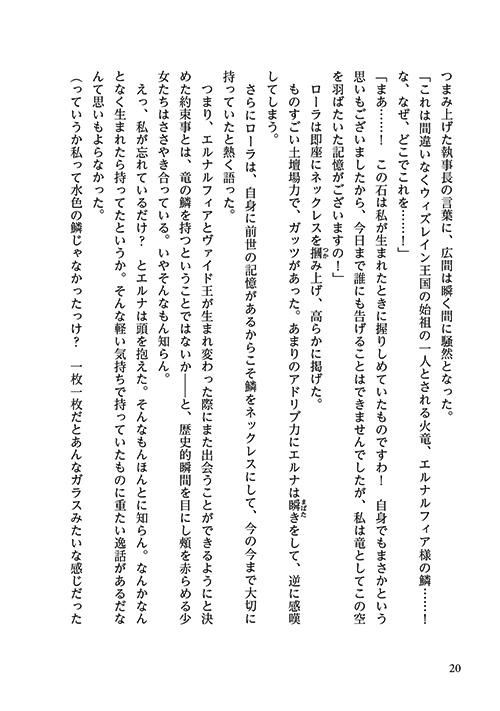 つまみ上げた執事長の言葉に、広間は瞬く間に騒然となった。
「これは間違いなくウィズレイン王国の始祖の一人とされる火竜、エルナルフィア様の鱗……！
な、なぜ、どこでこれを……！」
「まあ……！　この石は私が生まれたときに握りしめていたものですわ！　自身でもまさかという
思いもございましたから、今日まで誰にも告げることはできませんでしたが、私は竜としてこの空
を羽ばたいた記憶がございますの！」
ローラは即座にネックレスを摑つかみ上げ、高らかに掲げた。
ものすごい土壇場力で、ガッツがあった。あまりのアドリブ力にエルナは瞬まばたきをして、逆に感嘆
してしまう。
さらにローラは、自身に前世の記憶があるからこそ鱗をネックレスにして、今の今まで大切に
持っていたと熱く語った。
つまり、エルナルフィアとヴァイド王が生まれ変わった際にまた出会うことができるようにと決
めた約束事とは、竜の鱗を持つということではないか――と、歴史的瞬間を目にし頬を赤らめる少
女たちはささやき合っている。いやそんなもん知らん。
えっ、私が忘れているだけ？　とエルナは頭を抱えた。そんなもんほんとに知らん。なんかなん
となく生まれたら持ってたというか。そんな軽い気持ちで持っていたものに重たい逸話があるだな
んて思いもよらなかった。
（っていうか私って水色の鱗じゃなかったっけ？　一枚一枚だとあんなガラスみたいな感じだった
20